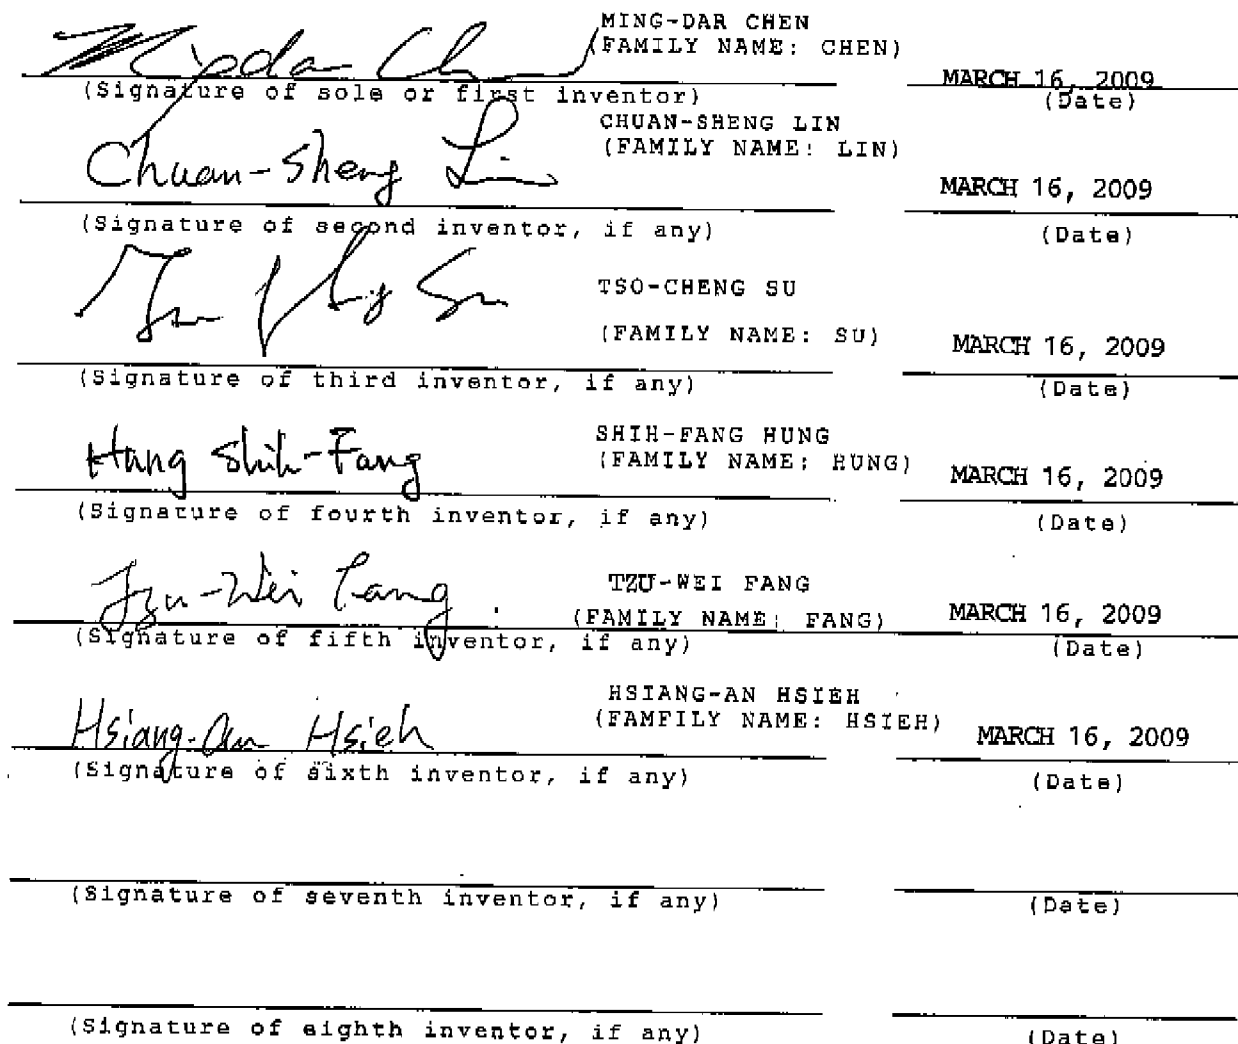 MING-DAR CHEN
(FAMILY NAME: CHEN)
MARCH 16, 2009
(Signature of sole or first inventor)
(Date)
CHUAN-SHENG LIN
(FAMILY NAME: LIN)
Chuan-Sheng Lin
MARCH 16, 2009
(Signature of second inventor, if any)
(Date)
TSO-CHENG SU
Su
(FAMILY NAME: SU)
MARCH 16, 2009
(Signature of third inventor, if any)
(Date)
SHIH-FANG HUNG
Hung Shih-Fang
(FAMILY NAME: HUNG)
MARCH 16, 2009
(Signature of fourth inventor, if any)
(Date)
TZU-WEI FANG
Tzu-Wei Fang
(FAMILY NAME: FANG)
MARCH 16, 2009
(Signature of fifth inventor, if any)
(Date)
HSIANG-AN HSIEH
(FAMFILY NAME: HSIEH)
Hsiang-An Hsieh
MARCH 16, 2009
(Signature of sixth inventor, if any)
(Date)
(Signature of seventh inventor, if any)
(Date)
(Signature of eighth inventor, if any)
(Date)